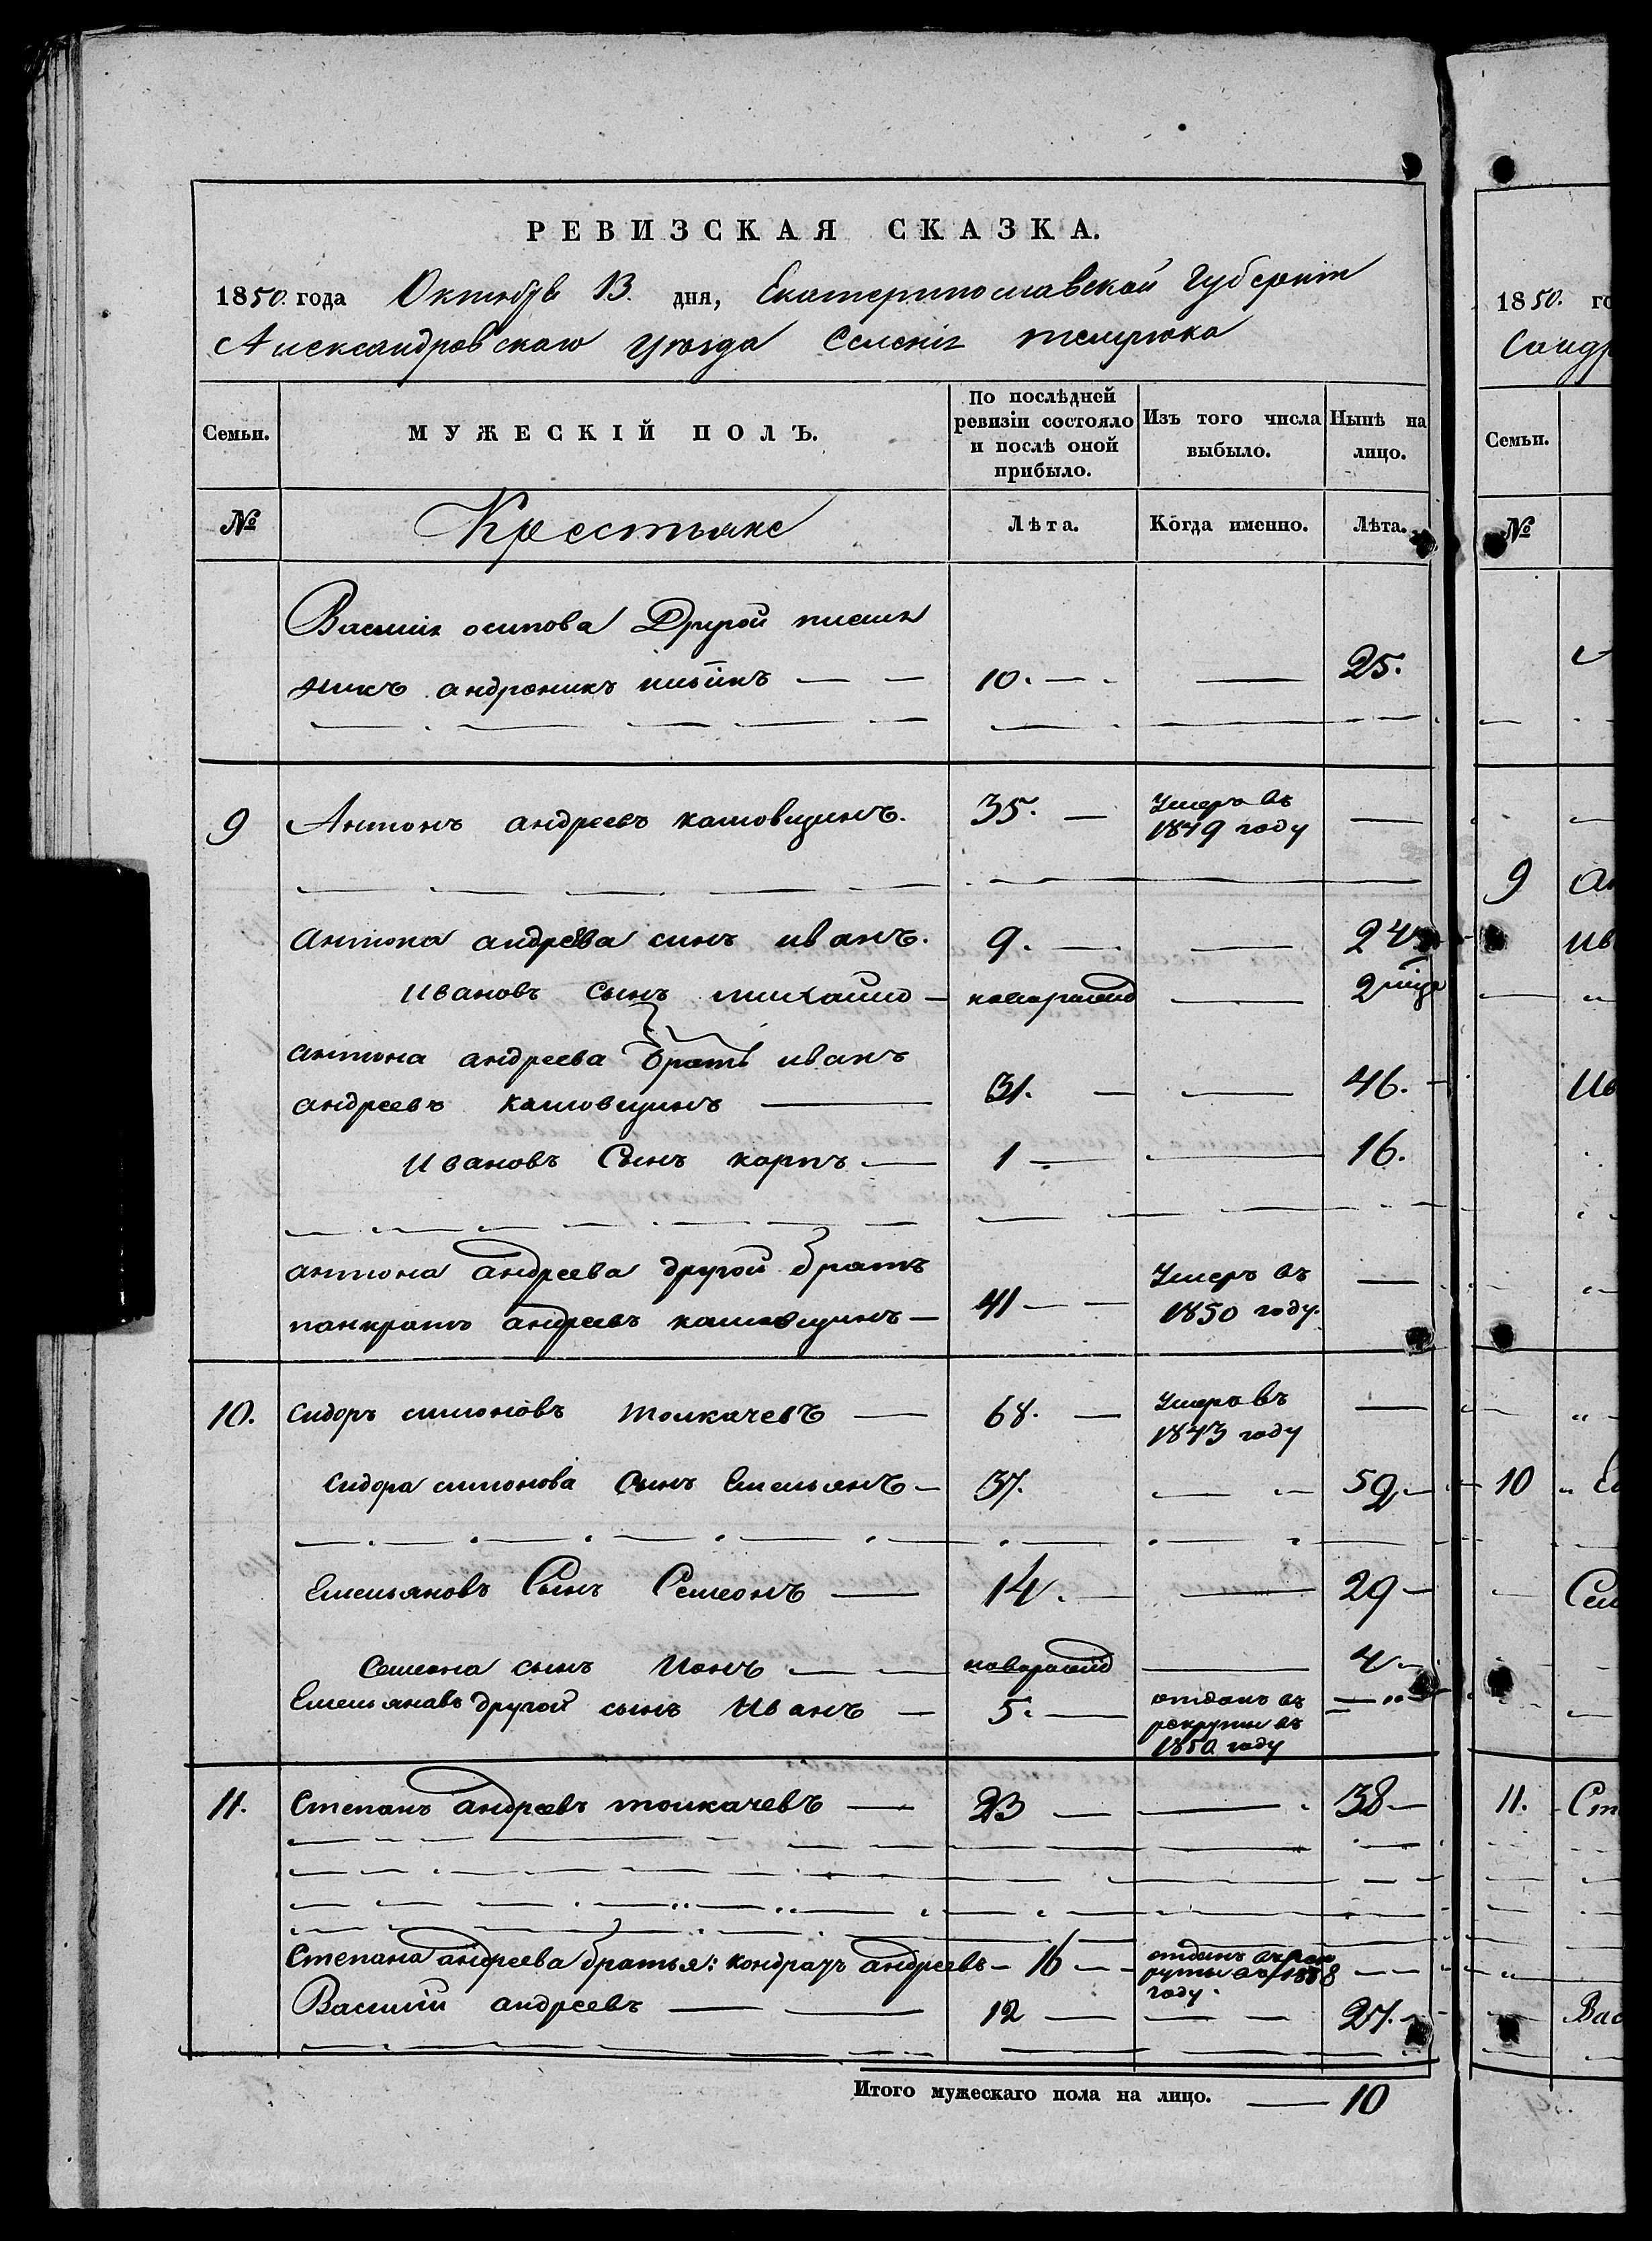 РЕВИЗСКАЯ СКАЗКА.
1850. года Октября 13. дня, Екатеринославской Губернiи
Александровскаго уѣзда Селенiя темрюка
Семьи.
МУЖЕСКIЙ ПОЛЪ.
По послѣдней ревизiи состояло и послѣ оной прибыло.
Изъ того числа выбыло.
Нынѣ на лицо.
№
Крестьяне
Лѣта.
Когда именно.
Лѣта.
Василiя осипова Другой племя
никъ андроникъ 10. 25.
9 Антонъ андреевъ 35. Умеръ въ 1849 году
антона андреева синъ иванъ. 9. 24
Ивановъ сынъ михаило новорожд 2
антона андреева братъ иванъ
андреевъ 31. 46.
Ивановъ Сынъ карпъ 1 16.
антона андреева другой братъ
панкратъ андреевъ 41 Умеръ въ 1850 году.
10. сидоръ симоновъ толкачевъ 68. Умеръ въ 1843 году
сидора симонова сынъ Емельянъ 37. 52
Емельяновъ Сынъ Семеонъ 14. 29
Семеона сынъ Ионъ новорожд 4
Емельяновъ другой сынъ Иванъ 5. отданъ въ рекруты въ 1850 году
11. Степанъ андреевъ толкачевъ 23 38
Степана андреева братья: кондратъ андреевъ 16 отданъ въ рек руты въ году.
Василiй андреевъ 12 27.
Итого мужескаго пола на лицо. 10
1850. го
Семьи.
№
9
10
11. Ст
Вас